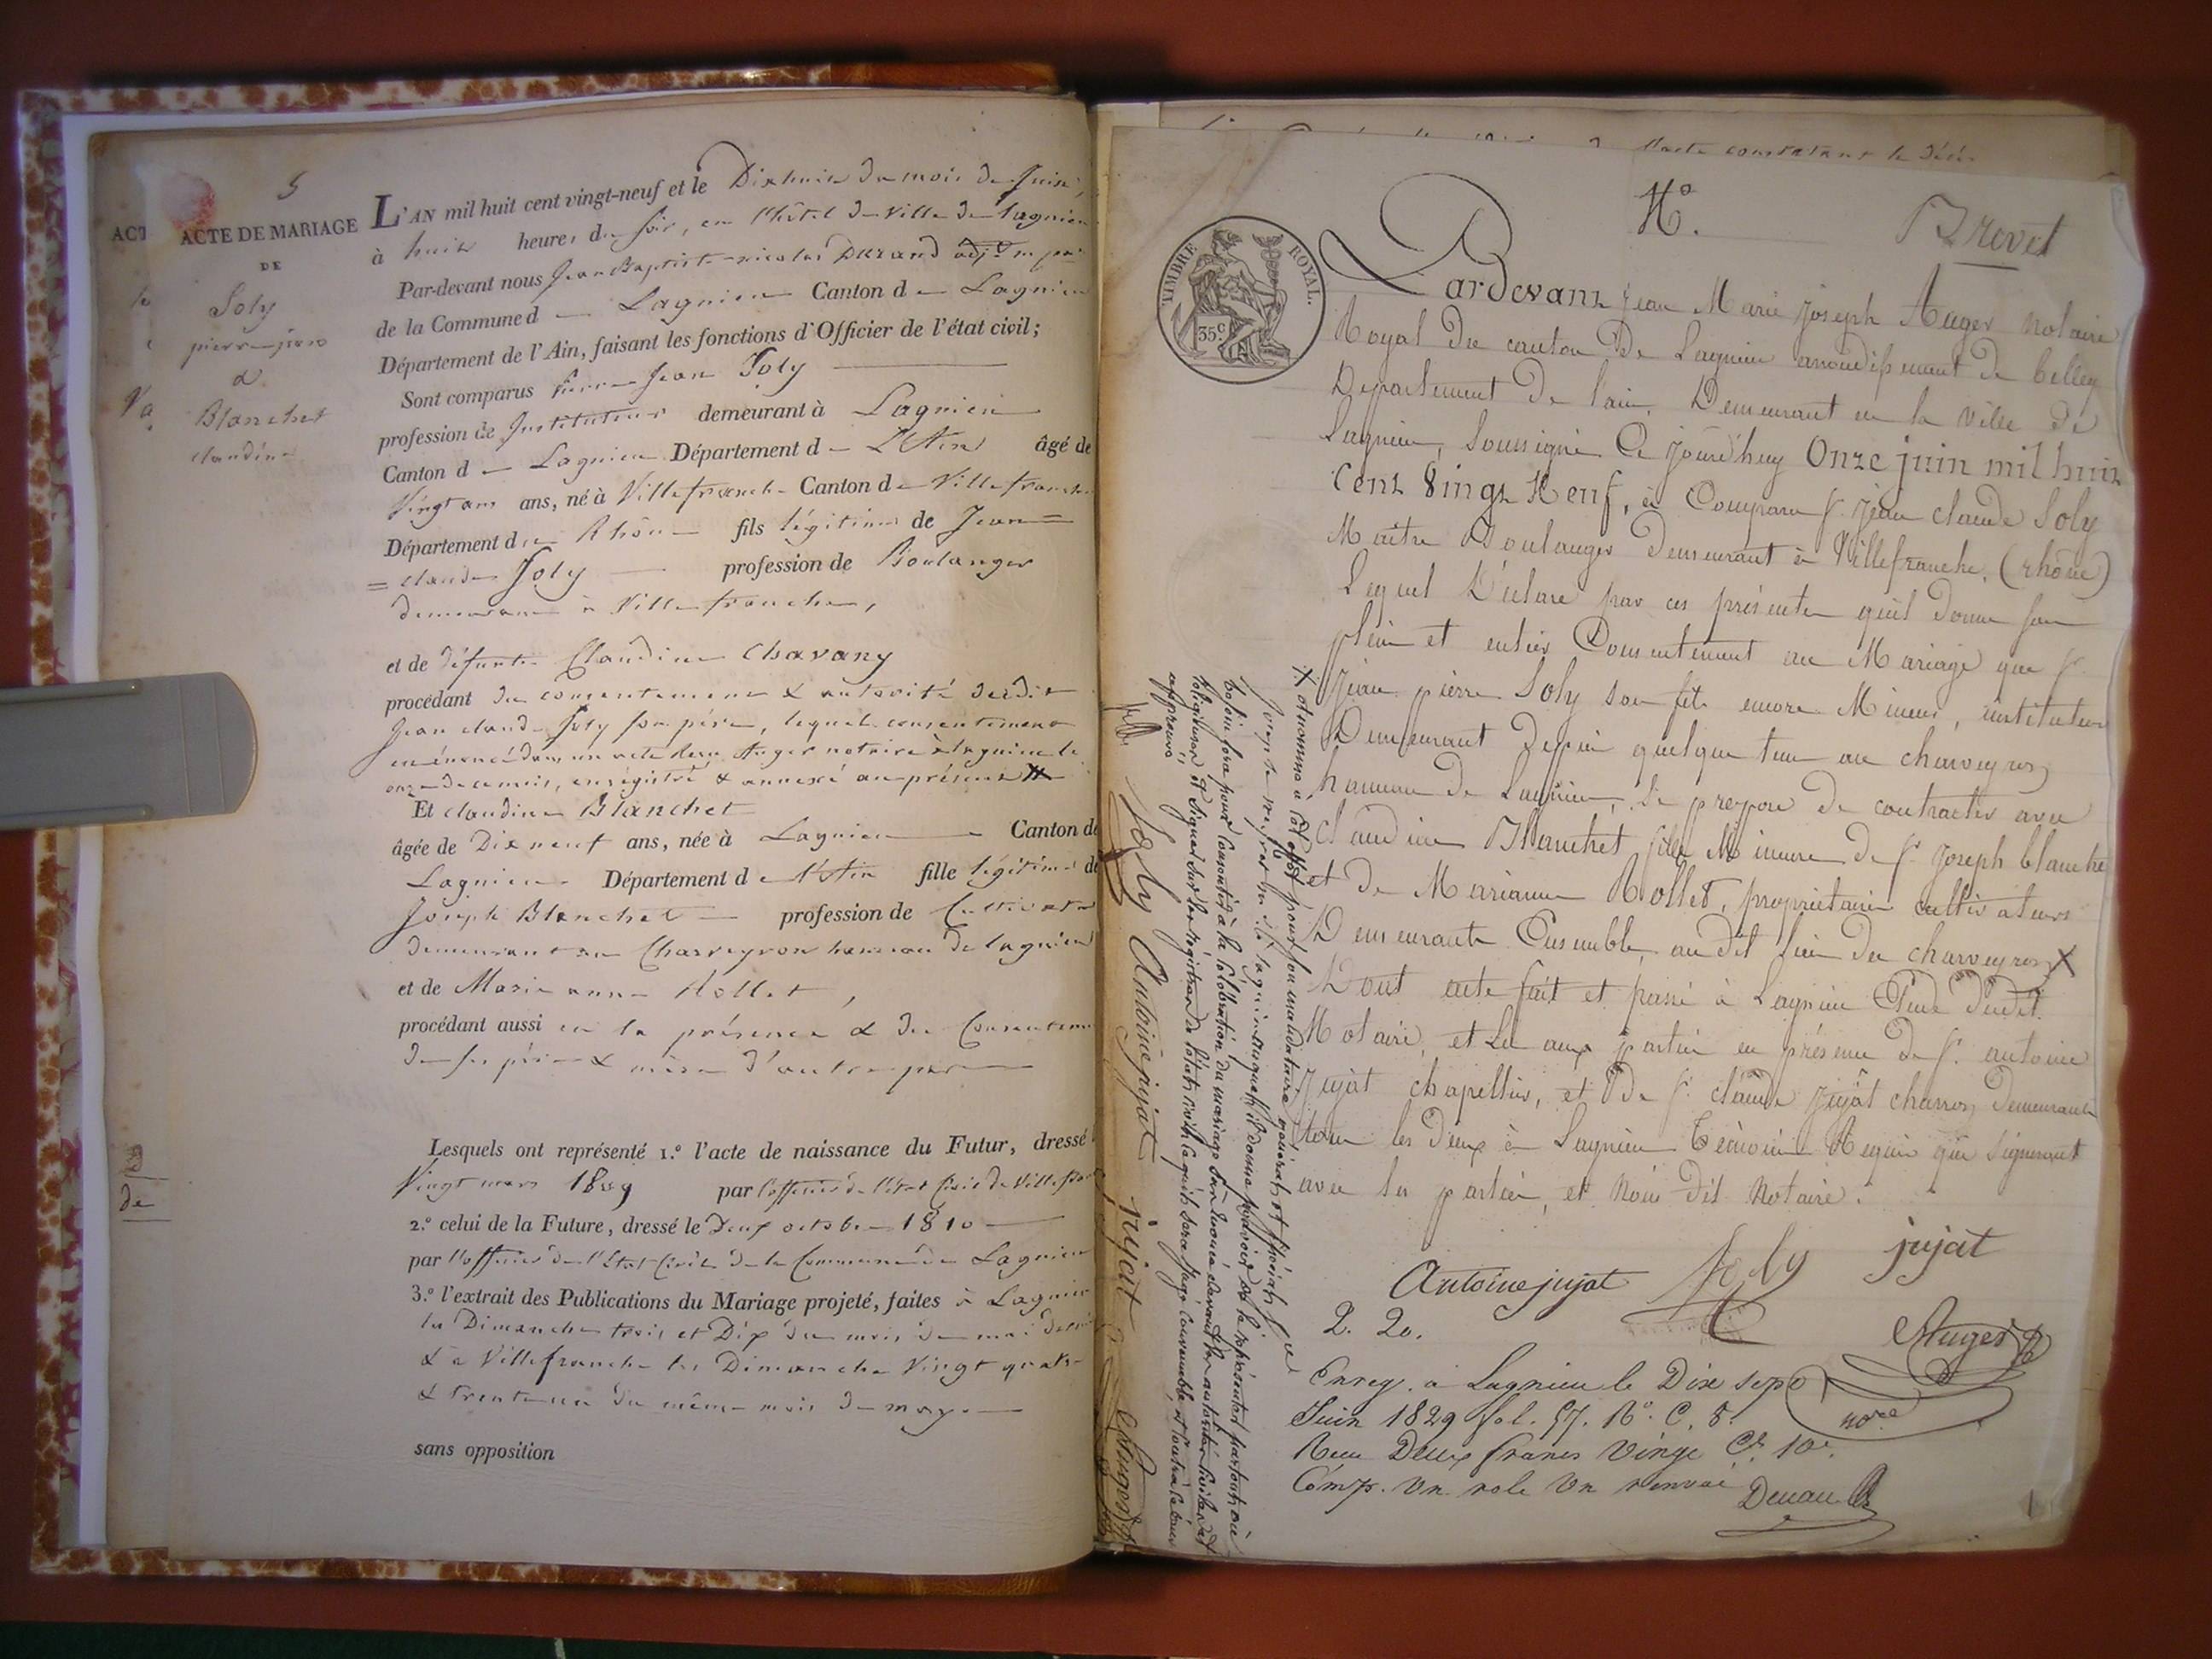 5
ACTE DE MARIAGE
DE
Soly
pierre jean
&
Blanchet
claudine
L'AN mil huit cent vingt-neuf et le Dixhuit du mois de Juin,
à huit heures du soir, en l'hôtel de Ville de Lagnieu
Par-devant nous Jean Baptiste nicolas Durand adj.t
de la Commune de Lagnieu Canton de Lagnieu
Département de l'Ain, faisant les fonctions d'Officier de l'état civil;
Sont comparus Pierre Jean Soly
profession de Instituteur demeurant à Lagnieu
Canton de Lagnieu Département de L'Ain âgé de
Vingt ans ans, né à Villefranche Canton de Villefranche
Département du Rhône fils légitime de Jean=
=claude Soly profession de Boulanger
demeurant à Villefranche,
et de défunte Claudine Chavany
procédant du consentement & autorité dudit
Jean claude Soly son père, lequel consentement
en énoncé dans un acte reçu Auger notaire à lagnieu le
onze de ce mois, enregistré & annexé au présent
Et claudine Blanchet
âgée de Dix neuf ans, née à Lagnieu Canton de
Lagnieu Département de l'Ain fille légitime de
Joseph Blanchet profession de Cultivateur
demeurant au Charveyron hameau de lagnieu
et de Marie anne Rollet,
procédant aussi en la présence & du Consentement
de ses père & mère d'autre part
Lesquels ont représenté 1.º l'acte de naissance du Futur, dressé
Vingt mars 1809 par l'officier de l'état Civil de Villefranche
2.º celui de la Future, dressé le Deux octobre 1810
par l'officier de l'État Civil de la Commune de Lagnieu
3.º l'extrait des Publications du Mariage projeté, faites à Lagnieu
les Dimanches trois et Dix du mois de mai dernier
& à Villefranche les Dimanches Vingt quatre
& trente un du même mois de may
sans opposition
l'acte constatant le décès
N.º
Brevet
TIMBRE ROYAL.
35.c
Pardevant Jean Marie Joseph Auger notaire
Royal du canton de Lagnieu arrondissement de belley
Département de l'ain, Demeurant en la Ville de
Lagnieu, Soussigné Ce jourd'huy Onze juin mil huit
Cent Vingt Neuf, a Comparu S.r Jean claude Soly
Maître Boulanger Demeurant à Villefranche, (rhône)
Lequel Déclare par ces présentes qu'il donne son
plein et entier Consentement au Mariage que S.r
Jean pierre Soly son fils encore Mineur, instituteur
Demeurant Depuis quelque tems au charveyron
hameau de Lagnieu, se propose de contracter avec
Claudine Blanchet fille Mineure de S.r Joseph blanchet
et de Marianne Rollet, propriétaires cultivateurs
Demeurants Ensemble, au dit lieu du charveyron X
Dont acte fait et passé à Lagnieu Étude dudit
Notaire, et Lu aux parties en présence de S.r antoine
Jujat chapellier, et de S.r claude Jujat charron demeurants
tous les deux à Lagnieu Témoins Requis qui signeront
avec les parties, et Nous Dit Notaire.
Antoine jujat Soly jujat
Auger
no.re
2. 20.
Enreg. à Lagnieu le Dix sept
Juin 1829 fol. 57. R.º C. 8.
Reçu Deux francs Vingt C. 10.e
Comp. Un role Un renvoi
X et nomme à cet effet pour son mandataire général et spécial
auquel il donne pouvoir de le représenter partout où
besoin sera pour Consentir à la Célébration du mariage
approuvé
Soly Antoine jujat jujat Auger